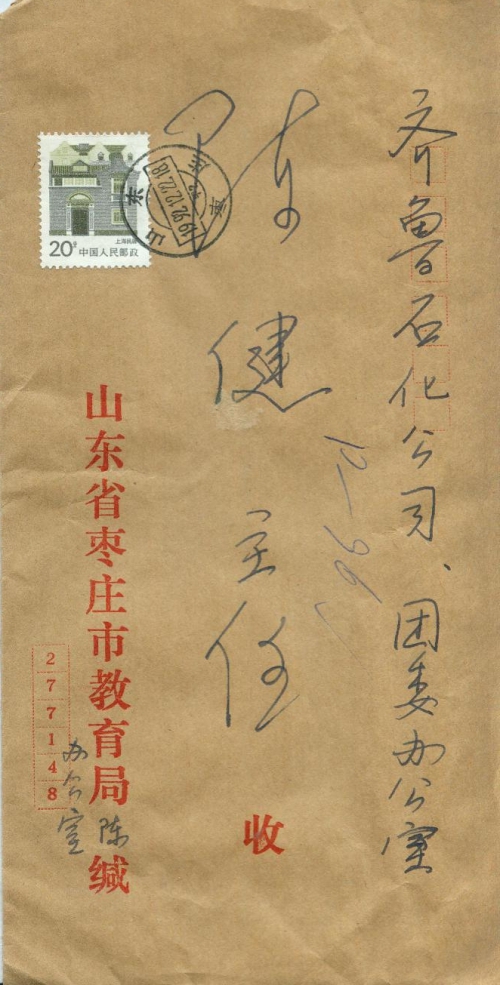 齐鲁石化公司、团委办公室
陈健主任
收
上海民居
20分
中国人民邮政
山东
1992.12.22.18
山东省枣庄市教育局
办公室
陈
缄
277148